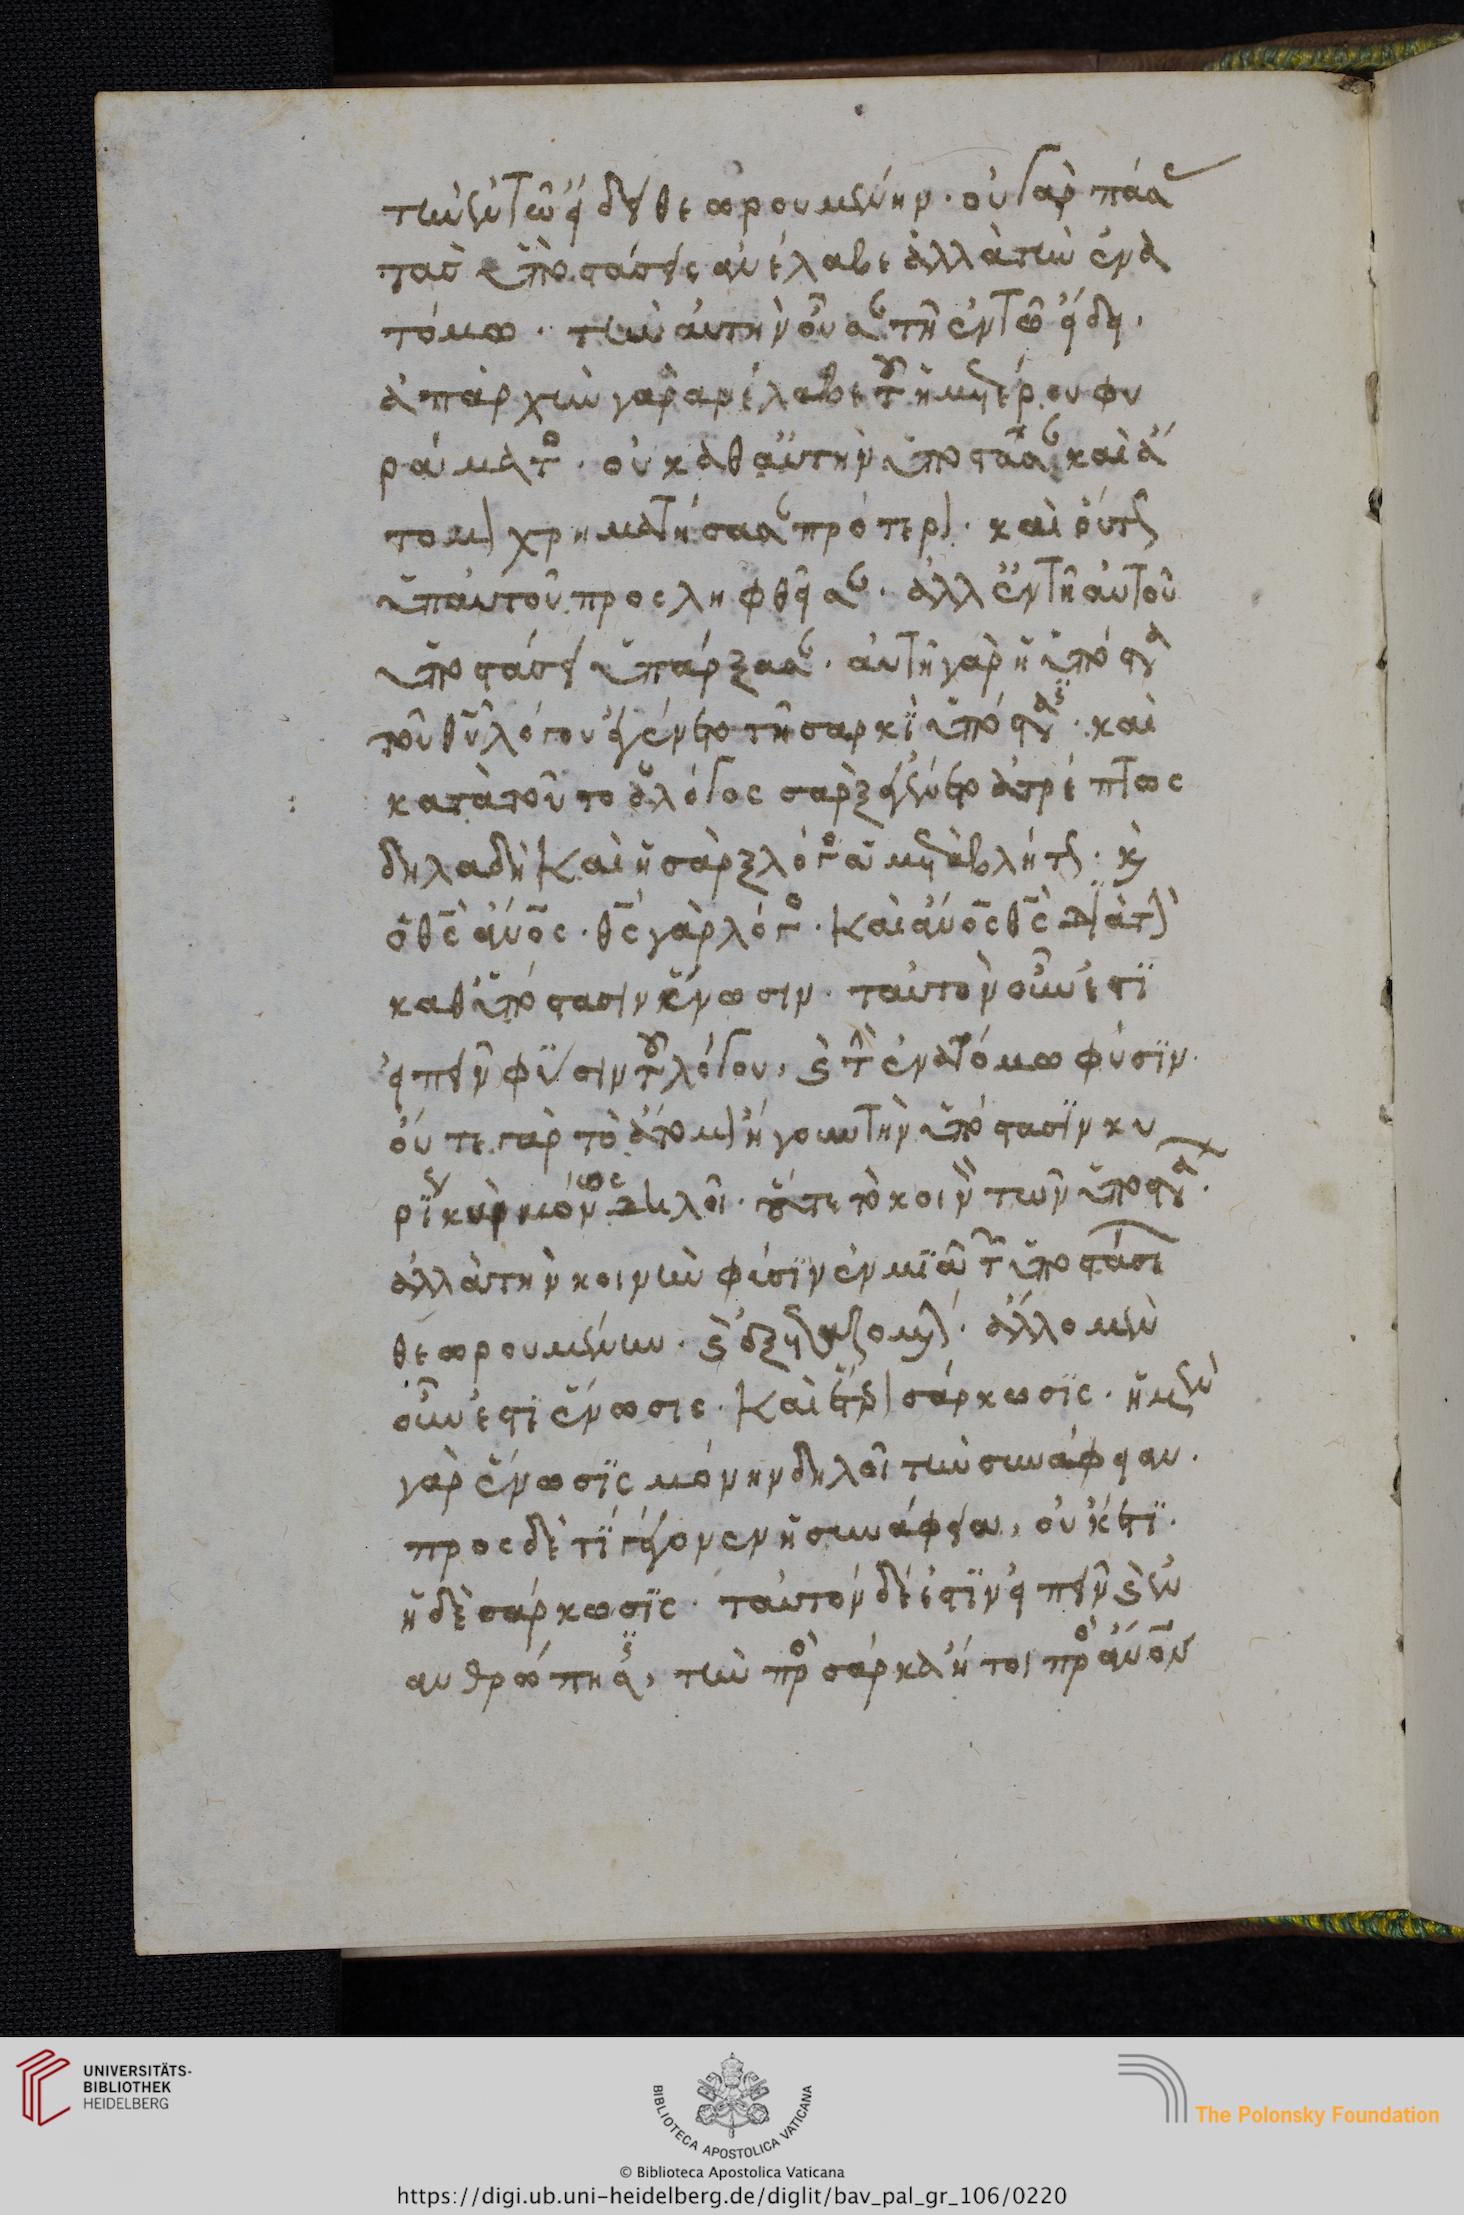 τὴν ἐν τῶ εἴδει θεωρουμένην. οὐ γὰρ πάσ
τὰσ ὑποστάσεις ἀνέλαβε ἀλλὰ τὴν ἐν ἀ
τόμω. τὴν αὐτὴν οὖσαν τῆ ἐν τῶ εἴδει.
ἀπαρχὴν γὰρ ἀνέλαβε τοῦ ἡμετέρου φυ
ράματος. οὐ καθαὐτὴν ὑποστᾶσαν καὶ ἄ
τομον χρηματήσασαν πρότερον. καὶ οὕτως
ὑπαὐτοῦ προσληφθεῖσαν. ἀλλ ἐν τῆ αὐτοῦ
ὑποστάσει ὑπάρξασαν. αὐτὴ γὰρ ἡ ὑπόστασις
τοῦ θυ λόγου ἐγένετο τῆ σαρκὶ ὑπόστασις. καὶ
κατὰ τοῦτο ὁ λόγος σὰρξ ἐγένετο ἀτρέπτως
δηλαδὴ καὶ ἡ σὰρξ λόγος ἀμεταβλήτως. κ
ὁ θς ἀνος. θς γὰρ λόγος. καὶ ἀνος θς διὰ τὴν
καθυπόστασιν ἕνωσιν. ταυτὸν οὖν ἐστὶ
εἰπεῖν φύσιν τοῦ λόγου, κ τὴν ἐν ἀτόμω φύσιν.
οὔτε γὰρ τὸ ἄτομον ἤγουν τὴν ὑπόστασιν κυ
ρίως μόνως δηλοῖ. οὔτε τὸ κοινὸν τῶν ὑποστάσεων.
ἀλλὰ τὴν κοινὴν φύσιν ἐν μιᾶ τῶν ὑποστάσεων
θεωρουμένην. κ ἐξεταζομένην. ἄλλο μὲν
οὖν ἐστὶ ἕνωσις. καὶ ἕτερον σάρκωσις. ἡ μὲν
γὰρ ἕνωσις μόνην δηλοῖ τὴν συνάφειαν.
προς δὲ τί γέγονεν ἡ συνάφεια, οὐκέτι.
ἡ δὲ σάρκωσις. ταυτὸν δέ ἐστιν εἰπεῖν κ ἐν
ανθρώπησις, τὴν πρὸς σάρκα ἤτοι πρὸς ἀνον
UNIVERSITÄTS-
BIBLIOTHEK
HEIDELBERG
BIBLIOTECA APOSTOLICA VATICANA
© Biblioteca Apostolica Vaticana
The Polonsky Foundation
https://digi.ub.uni-heidelberg.de/diglit/bav_pal_gr_106/0220